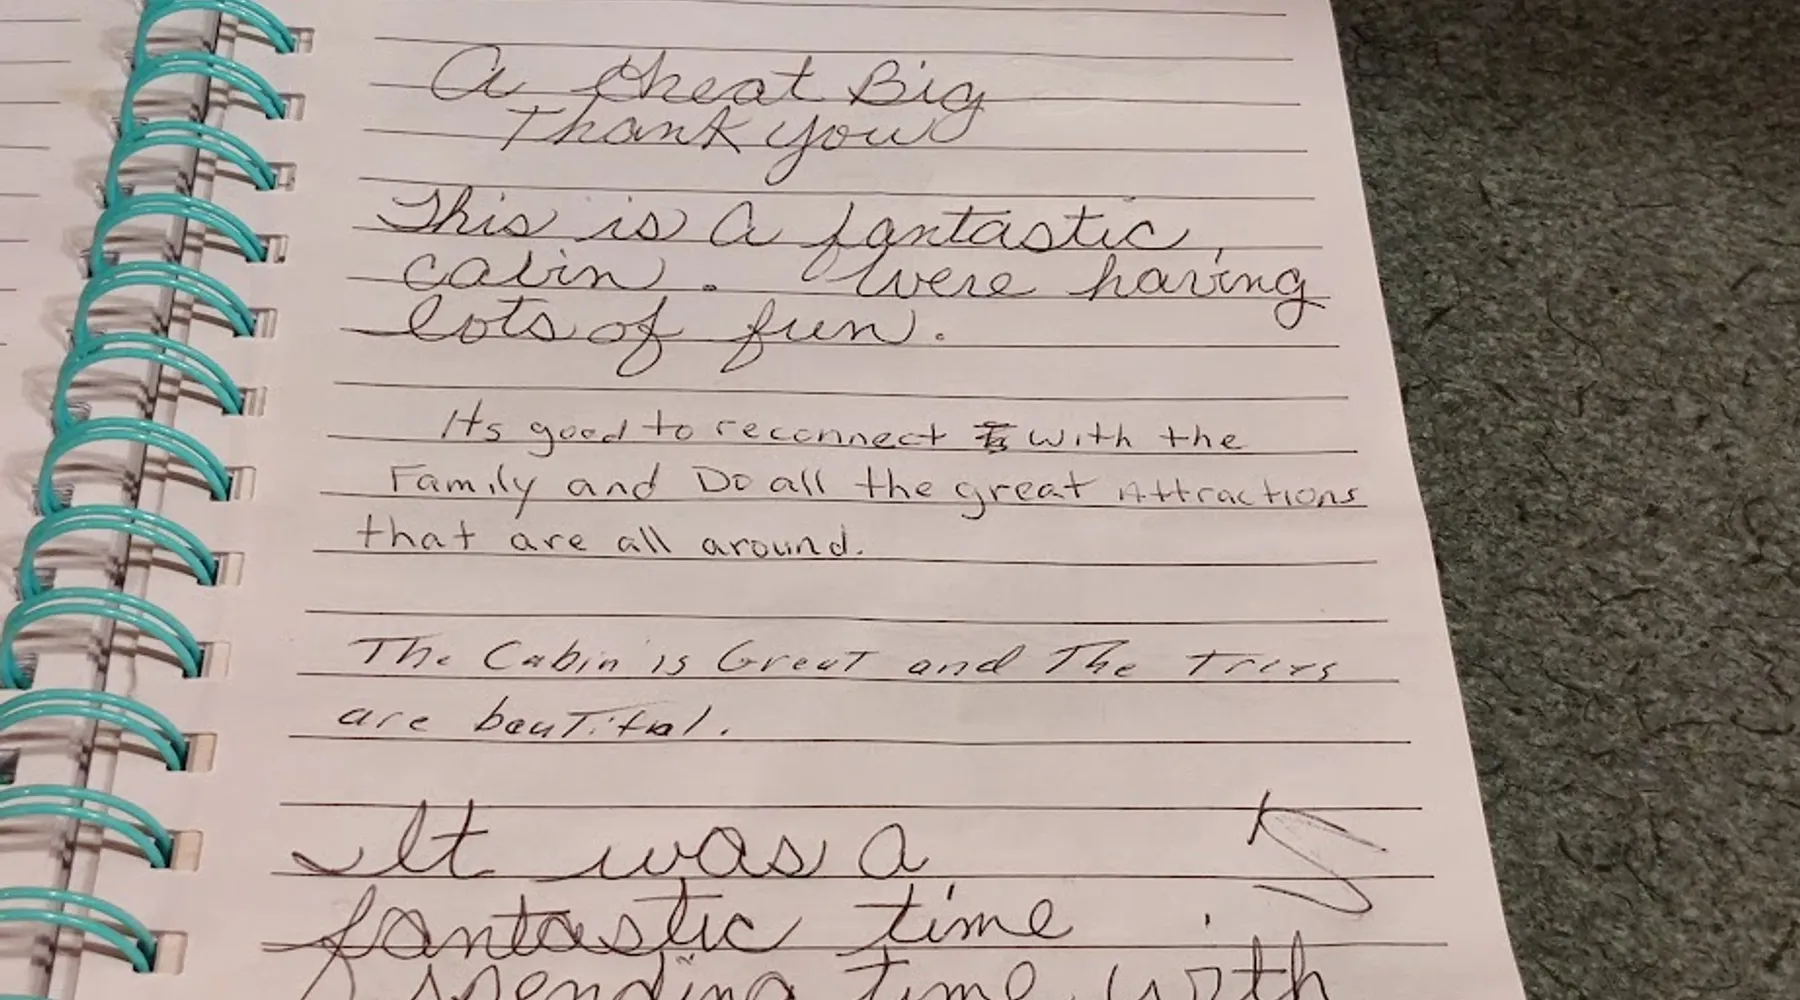 A Great Big
Thank you
This is A fantastic
cabin. Were having
lots of fun.
Its good to reconnect with the
Family and Do all the great Attractions
that are all around.
The Cabin is Great and The Trees
are beautiful.
It was a
fantastic time
spending time with